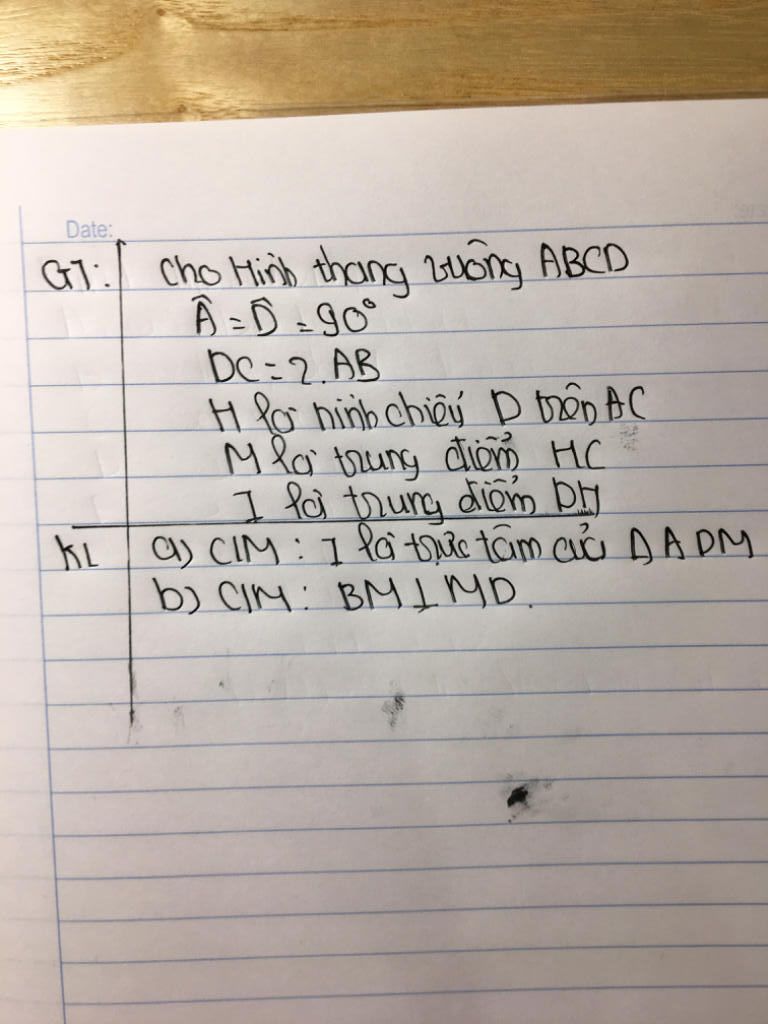 Date:
GT: Cho Hình thang vuông ABCD
Â = D̂ = 90°
DC = 2.AB
H là hình chiếu D trên AC
M là trung điểm HC
I là trung điểm DH
KL a) C/M : I là trực tâm của Δ ADM
b) C/M : BM ⊥ MD.